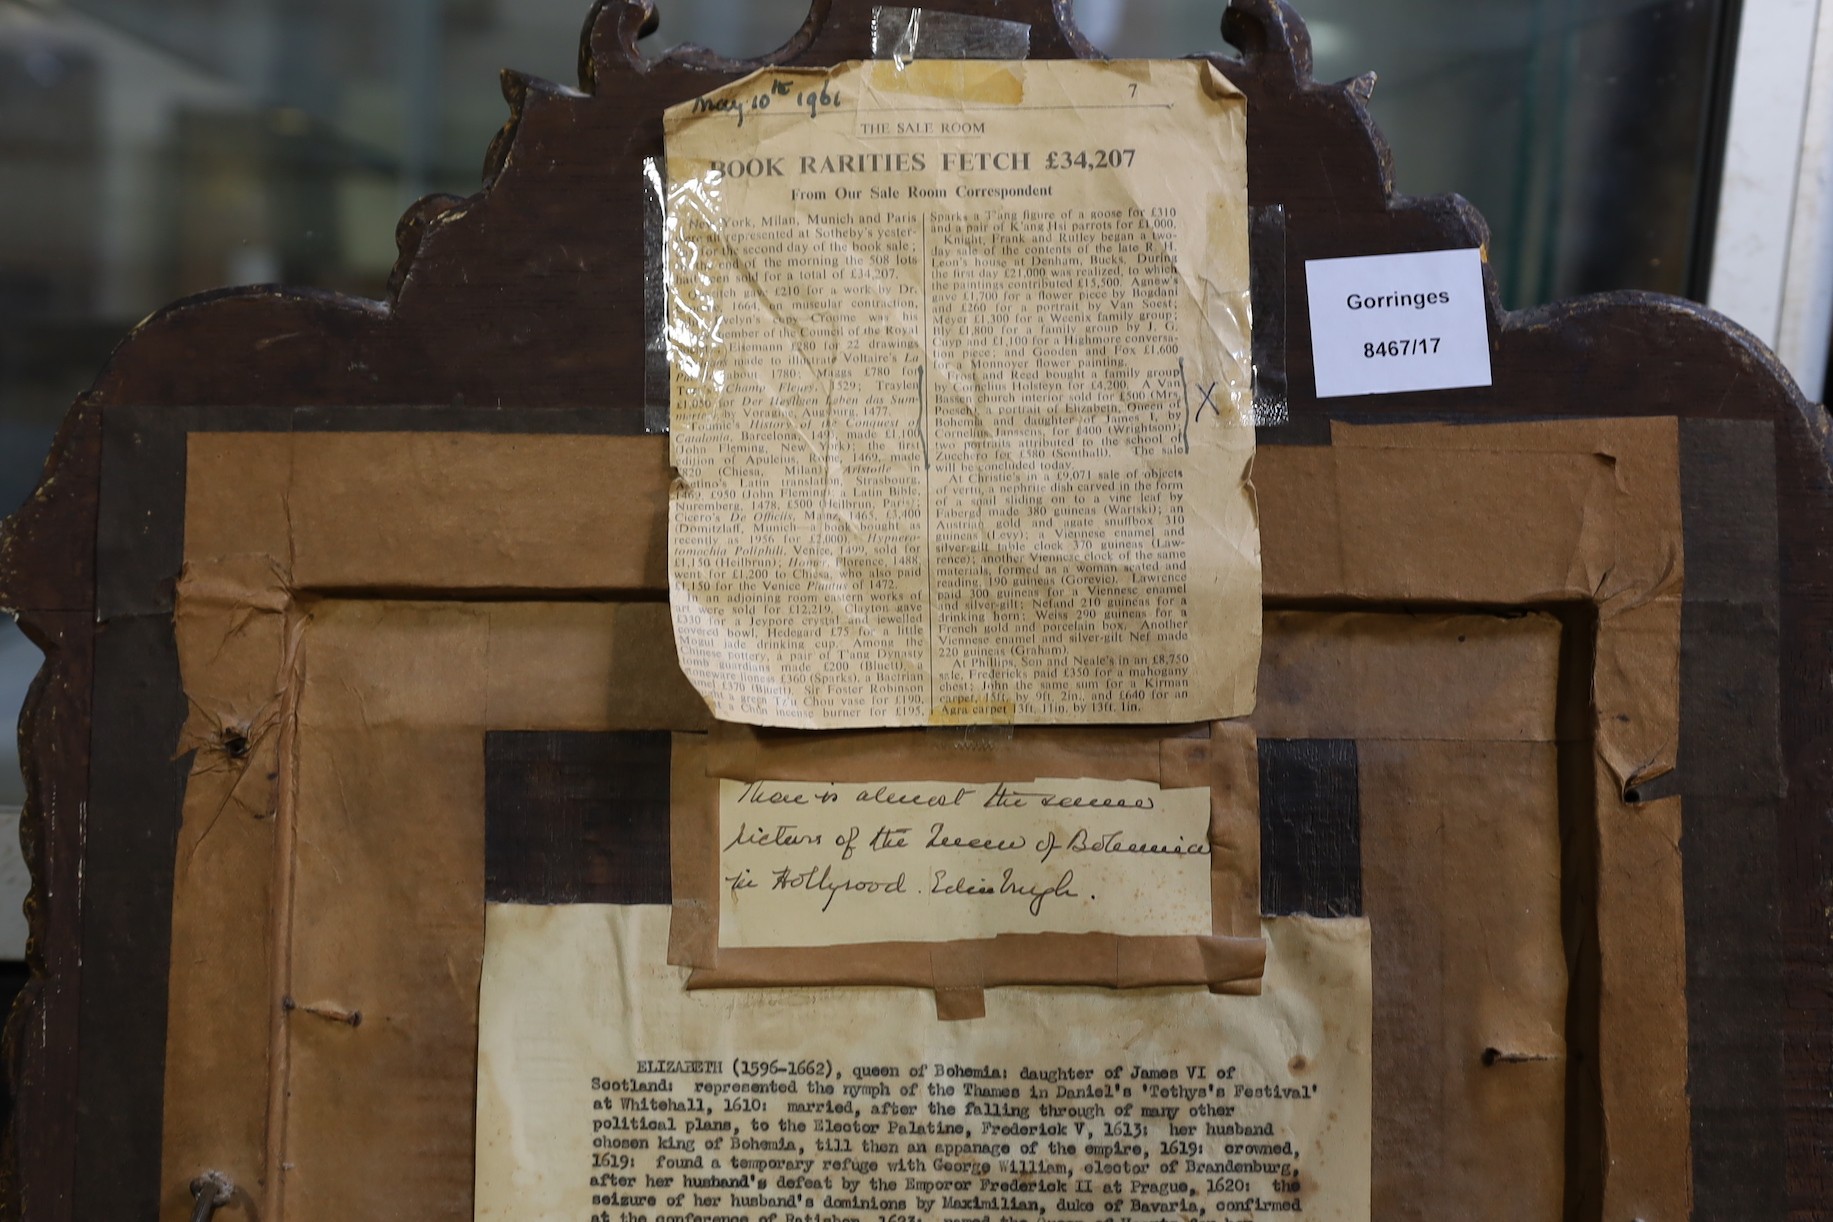 May 10th 1961
7
THE SALE ROOM
BOOK RARITIES FETCH £34,207
From Our Sale Room Correspondent
York, Milan, Munich and Paris
all represented at Sotheby's yester-
for the second day of the book sale;
end of the morning the 508 lots
been sold for a total of £34,207.
gave £210 for a work by Dr.
1664, on muscular contraction,
copy Croume was his
member of the Council of the Royal
Eisemann £280 for 22 drawings
made to illustrate Voltaire's La
about 1780; Maggs £780 for
Champ Fleury, 1529; Traylen
£1,050 for Der Heyligen leben das Sum-
by Voragine, Augsburg, 1477.
History of the Conquest of
Catalonia, Barcelona, made £1,100
(John Fleming, New York); the first
edition of Apuleius, Rome, 1469, made
£820 (Chiesa, Milan); Aristotle in
Latin translation, Strasbourg,
£950 (John Fleming); a Latin Bible,
Nuremberg, 1478, £500 (Heilbrun, Paris);
Cicero's De Officiis, Mainz, 1465, £3,400
(Domitzlaff, Munich—a book bought as
recently as 1956 for £2,000). Hypnero-
tomachia Poliphili, Venice, 1499, sold for
£1,150 (Heilbrun); Homer, Florence, 1488,
went for £1,200 to Chiesa, who also paid
£1,150 for the Venice Plautus of 1472.
In an adjoining room eastern works of
art were sold for £12,219. Clayton gave
£330 for a Jeypore crystal and jewelled
covered bowl, Hedegard £75 for a little
Mogul jade drinking cup. Among the
Chinese pottery, a pair of T'ang Dynasty
tomb guardians made £200 (Bluett), a
stoneware lioness £360 (Sparks), a Bactrian
camel £370 (Bluett). Sir Foster Robinson
a green Tz'u Chou vase for £190,
a Chün incense burner for £195,
Sparks a T'ang figure of a goose for £310
and a pair of K'ang Hsi parrots for £1,000.
Knight, Frank and Rutley began a two-
day sale of the contents of the late R. H.
Leon's house at Denham, Bucks. During
the first day £21,000 was realized, to which
the paintings contributed £15,500. Agnew's
gave £1,700 for a flower piece by Bogdani
and £260 for a portrait by Van Soest;
Meyer £1,300 for a Weenix family group;
Bly £1,800 for a family group by J. G.
Cuyp and £1,100 for a Highmore conversa-
tion piece; and Gooden and Fox £1,600
for a Monnoyer flower painting.
Frost and Reed bought a family group
by Cornelius Holsteyn for £4,200. A Van
Bassen church interior sold for £500 (Mrs.
Poesch), a portrait of Elizabeth, Queen of
Bohemia and daughter of James I, by
Cornelius Janssens, for £400 (Wrightson);
two portraits attributed to the school of
Zucchero for £580 (Southall). The sale
will be concluded today.
At Christie's in a £9,071 sale of objects
of vertu, a nephrite dish carved in the form
of a snail sliding on to a vine leaf by
Fabergé made 380 guineas (Wartski); an
Austrian gold and agate snuffbox 310
guineas (Levy); a Viennese enamel and
silver-gilt table clock 370 guineas (Law-
rence); another Viennese clock of the same
materials, formed as a woman seated and
reading, 190 guineas (Gorevic). Lawrence
paid 300 guineas for a Viennese enamel
and silver-gilt; Nefand 210 guineas for a
drinking horn; Weiss 290 guineas for a
French gold and porcelain box. Another
Viennese enamel and silver-gilt Nef made
220 guineas (Graham).
At Phillips, Son and Neale's in an £8,750
sale, Fredericks paid £350 for a mahogany
chest; John the same sum for a Kirman
carpet, 15ft. by 9ft. 2in., and £640 for an
Agra carpet 13ft. 11in. by 13ft. 1in.
X
Gorringes
8467/17
There is almost the same
picture of the Queen of Bohemia
in Hollyrood. Edinburgh.
ELIZABETH (1596-1662), queen of Bohemia: daughter of James VI of
Scotland: represented the nymph of the Thames in Daniel's 'Tethys's Festival'
at Whitehall, 1610: married, after the falling through of many other
political plans, to the Elector Palatine, Frederick V, 1613: her husband
chosen king of Bohemia, till then an appanage of the empire, 1619: crowned,
1619: found a temporary refuge with George William, elector of Brandenburg,
after her husband's defeat by the Emperor Frederick II at Prague, 1620: the
seizure of her husband's dominions by Maximilian, duke of Bavaria, confirmed
at the conference of Ratisbon, 1623: named the Queen of Hearts